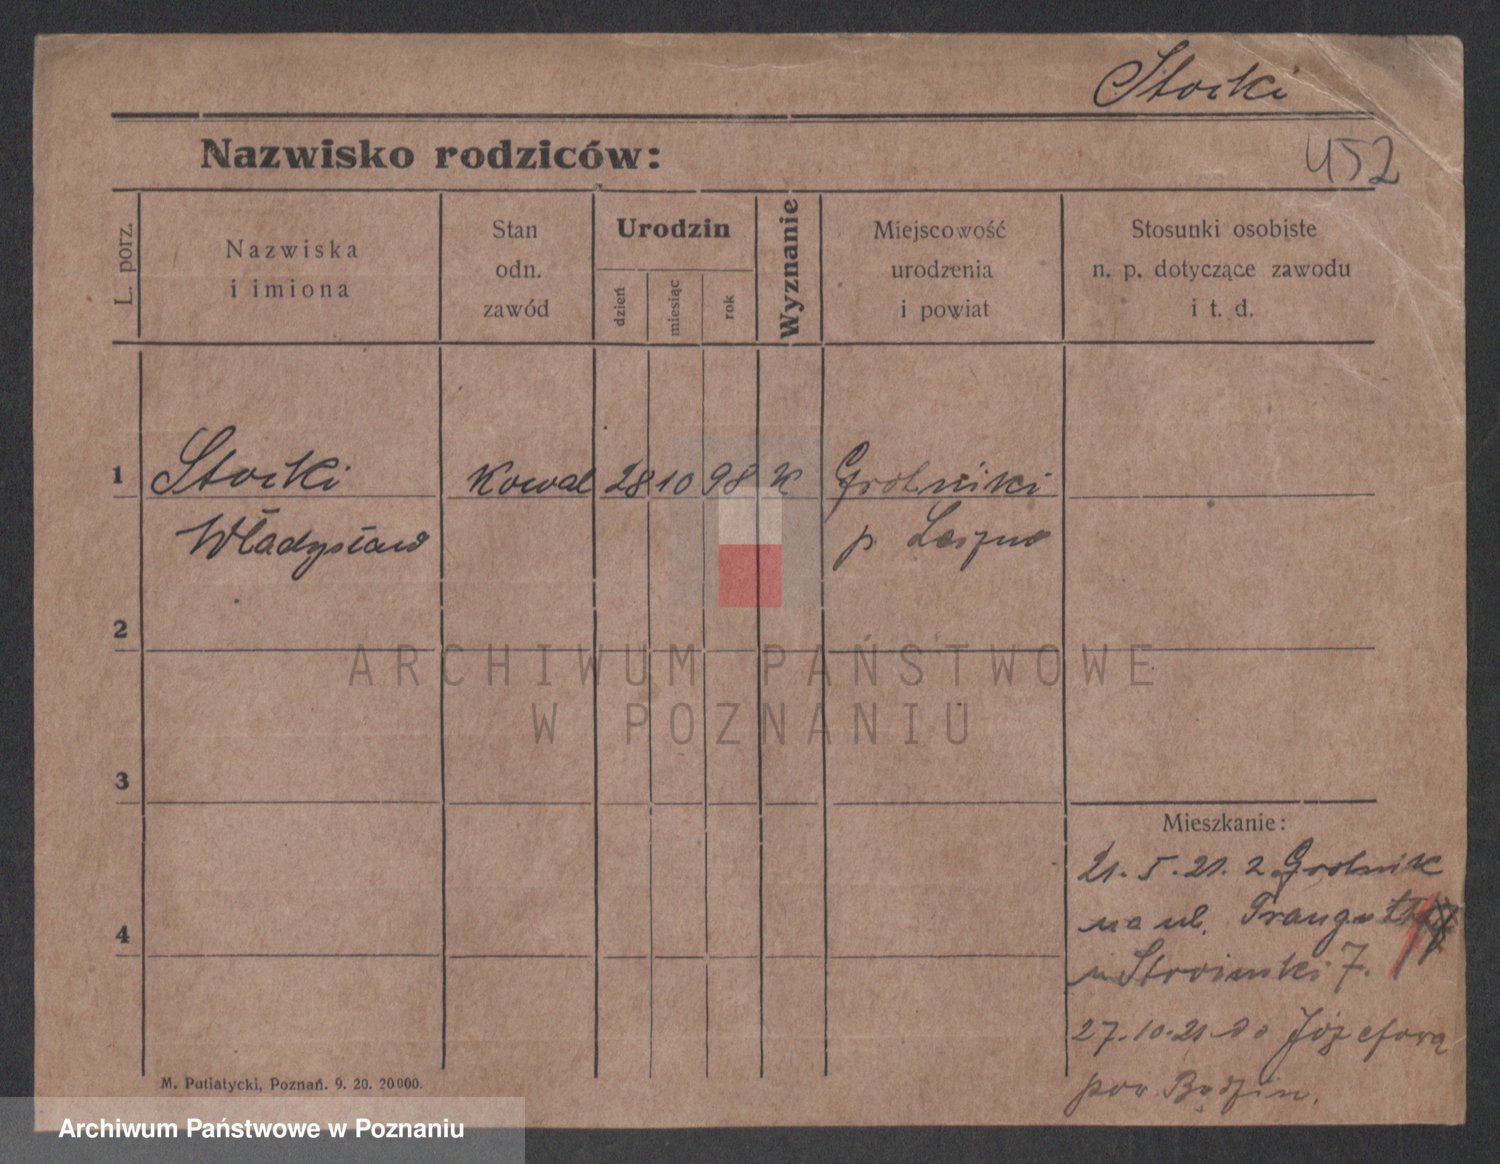 Stocki
Nazwisko rodziców:
452
L. porz.
Nazwiska
i imiona
Stan
odn.
zawód
Urodzin
dzień
miesiąc
rok
Wyznanie
Miejscowość
urodzenia
i powiat
Stosunki osobiste
n. p. dotyczące zawodu
i t. d.
1 Stocki Kowal 28 10 98 K Grotniki
Władysław p Leszno
2
ARCHIWUM PAŃSTWOWE
W POZNANIU
3
Mieszkanie:
21.5.21. z Grotnik
4
na ul.
u 7.
27.10.21 do Józefowa
pow Będzin.
M. Putiatycki, Poznań. 9. 20. 20000.
Archiwum Państwowe w Poznaniu